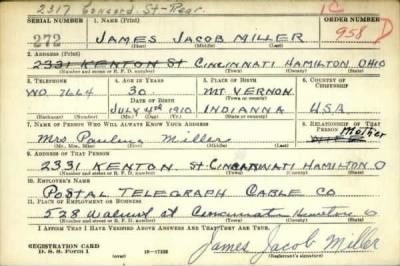 2317 Concord St - Rear.
1C
SERIAL NUMBER 1. NAME (Print) ORDER NUMBER
272 JAMES JACOB MILLER 958 D
(First) (Middle) (Last)
2. ADDRESS (Print)
2331 KENTON St CINCINNATI HAMILTON OHIO
(Number and street or R. F. D. number) (Town) (County) (State)
3. TELEPHONE 4. AGE IN YEARS 5. PLACE OF BIRTH 6. COUNTRY OF CITIZENSHIP
WO. 7664 30 MT. VERNON
DATE OF BIRTH
JULY 4TH 1910 INDIANNA USA
(Exchange) (Number) (Mo.) (Day) (Yr.) (State or country)
7. NAME OF PERSON WHO WILL ALWAYS KNOW YOUR ADDRESS 8. RELATIONSHIP OF THAT PERSON
Mother
Mrs Pauline Miller WIFE
(Mr., Mrs., Miss) (First) (Middle) (Last)
9. ADDRESS OF THAT PERSON
2331 KENTON. St CINCINNATI HAMILTON O
(Number and street or R. F. D. number) (Town) (County) (State)
10. EMPLOYER'S NAME
POSTAL TELEGRAPH CABLE CO
11. PLACE OF EMPLOYMENT OR BUSINESS
528 Walnut st Cincinnati Hamilton O
(Number and street or R. F. D. number) (Town) (County) (State)
I AFFIRM THAT I HAVE VERIFIED ABOVE ANSWERS AND THAT THEY ARE TRUE.
REGISTRATION CARD
D. S. S. Form 1 16-17105 James Jacob Miller
(Registrant's signature)